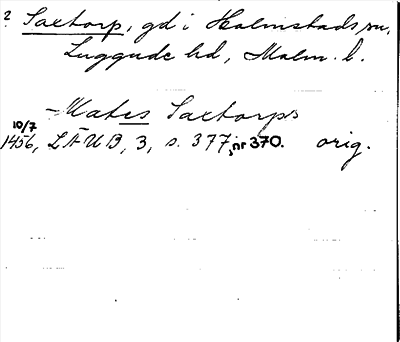 ? Saxtorp, gd i Halmstads sn,
Luggude hd, Malm. l.
- Mates Saxtorps
10/7
1456, LÄUB, 3, s. 377, nr 370. orig.